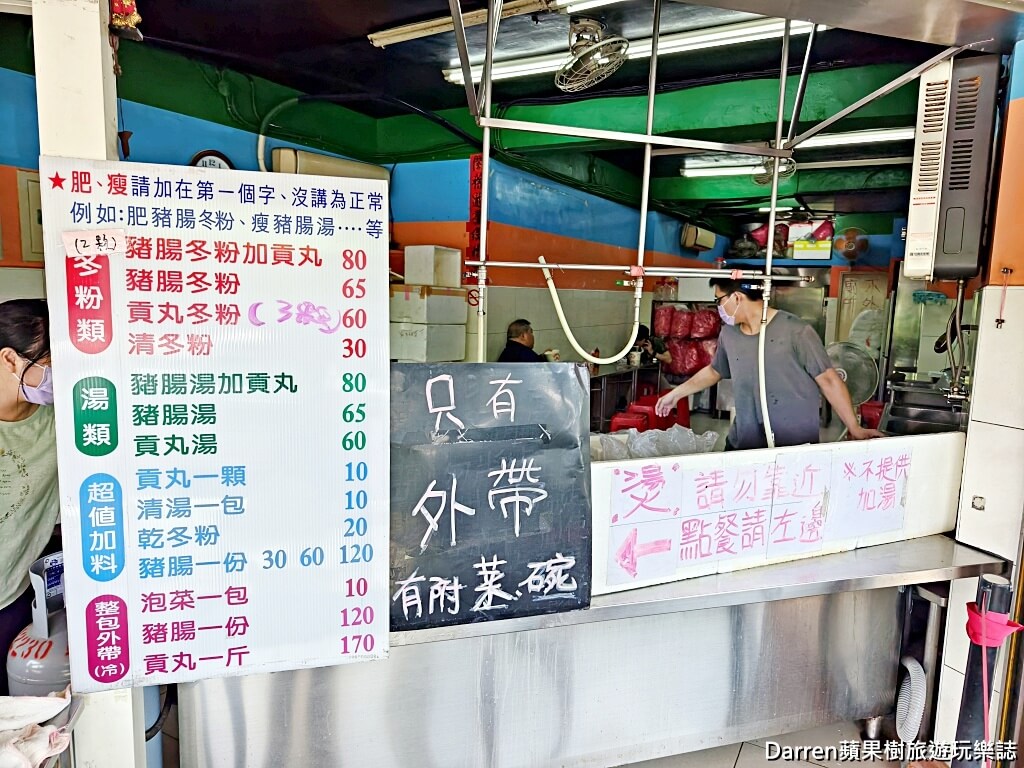 ★肥、瘦請加在第一個字、沒講為正常
例如:肥豬腸冬粉、瘦豬腸湯‥‥等
(2顆)
冬粉類
豬腸冬粉加貢丸 80
豬腸冬粉 65
貢丸冬粉(3顆) 60
清冬粉 30
湯類
豬腸湯加貢丸 80
豬腸湯 65
貢丸湯 60
超值加料
貢丸一顆 10
清湯一包 10
乾冬粉 20
豬腸一份 30 60 120
整包外帶(冷)
泡菜一包 10
豬腸一份 120
貢丸一斤 170
只有
外帶
有附菜.碗
"燙"請勿靠近
←點餐請左邊
※不提供
加湯
Darren蘋果樹旅遊玩樂誌